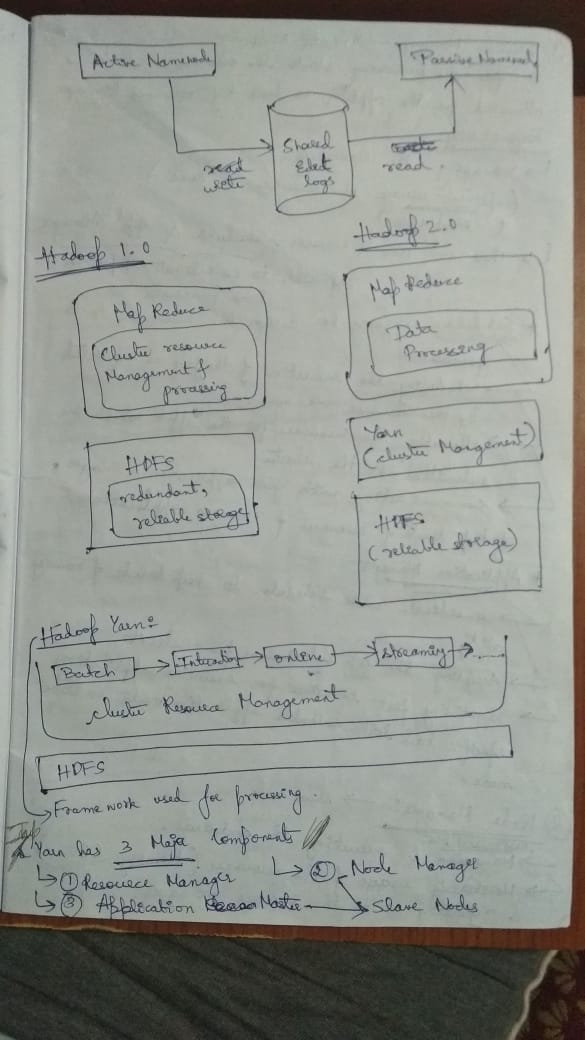 Active Namenode
Passive Namenode
Shared
Edit
logs
read
write
read.
Hadoop 1.0
Hadoop 2.0
Map Reduce
Cluster resource
Management &
processing
Map Reduce
Data
Processing
HDFS
redundant,
reliable storage
Yarn
(cluster Mangement)
HDFS
(reliable storage)
Hadoop Yarn:
Batch
Interactive
online
streaming
.....
cluster Resource Management
HDFS
Frame work used for processing.
Yarn has 3 Major Components
① Resource Manager
② Node Manager
③ Application Master
Slave Nodes